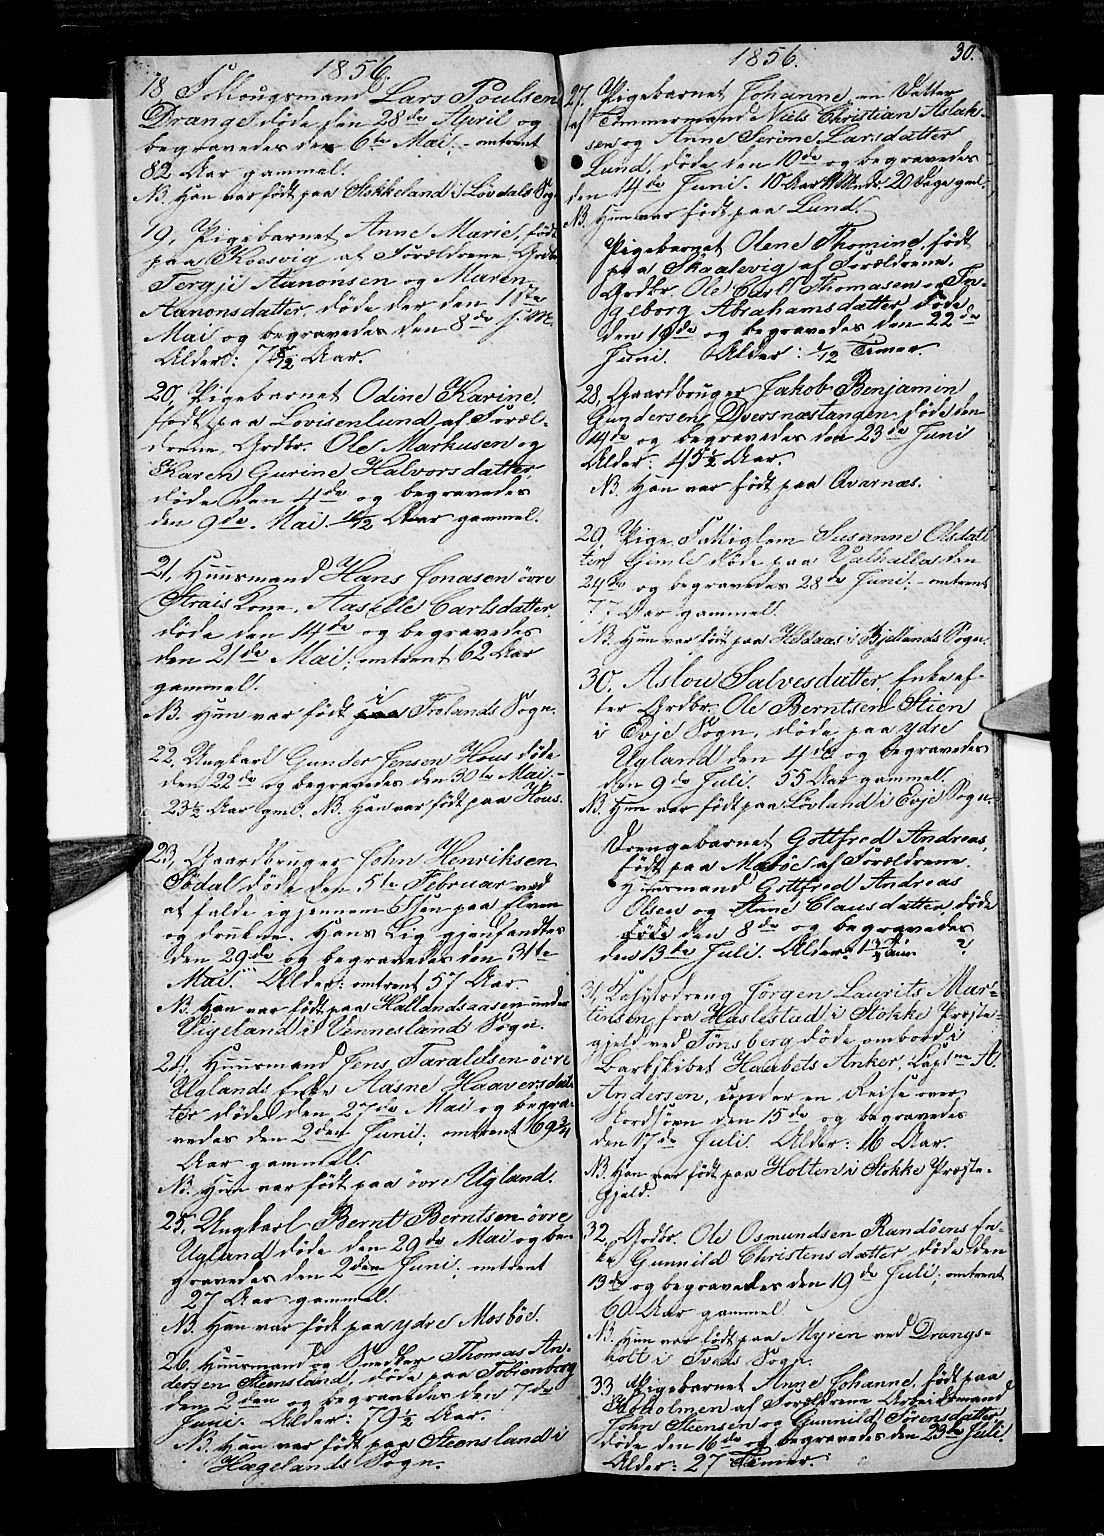 1856.
18, Follougsmand Lars Poulsen
Drange døde den 28de April og
begravedes den 6te Mai, omtrent
82 Aar gammel.
NB. Han var født paa Stokkeland i Løvdals Sogn
19, Pigebarnet Anne Marie, født
paa Koesvig af Forældrene Grdbr.
Tergji Aanonsen og Maren
Aanonsdatter, døde der den 1ste
Mai og begravedes den 8de s. M.
Alder: 7/12 Aar.
20, Pigebarnet Odine Karine,
født paa Lovisenlund af Foræl-
drene Grdbr. Ole Markusen og
Karen Gurine Halvorsdatter,
døde den 4de og begravedes
den 9de Mai /12 Aar gammel.
21, Huusmand Hans Jonasen øvre
Strais Kone, Aaselle Carlsdatter,
døde den 14de og begravedes
den 21de Mai, omtrent 62 Aar
gammel.
NB. Hun var født i Frolands Sogn.
22, Ungkarl Gunder Jensen Hous døde
den 22de og begravedes den 30te Mai,
23½ Aar gml. NB. Han var født paa Hous.
23, Gaardbruger John Henriksen
Sødal døde den 5te Februar ved
at falde igjennem Isen paa Elven
og drukne. Hans Lig gjenfandtes
den 29de og begravedes den 31te
Mai. Alder: omtrent 57 Aar.
NB. Han var født paa Hallandsaasen under
Vigeland i Vennesland Sogn.
24, Huusmand Jens Taraldsen øvre
Uglands Enke Aasne Haaversdat-
ter døde den 27de Mai og begra-
vedes den 2den Juni, omtrent 69¾
Aar gammel.
NB. Hun var født paa øvre Ugland.
25, Ungkarl Bernt Berntsen øvre
Ugland døde den 29de Mai og be-
gravedes den 2den Juni, omtrent
27 Aar gammel.
NB. Han var født paa ydre Mosbøe.
26, Huusmand og Snedker Thomas An-
dersen Steensland, døde paa Tobienborg
den 2den og begravedes den 7de
Juni. Alder: 79½ Aar.
NB. Han var født paa Steensland i
Hægelands Sogn.
1856.
30.
27, Pigebarnet Johanne, en Datter
af Tømmermand Niels Christian Aslak-
sen og Anne Serine Larsdatter
Lund, døde den 10de og begravedes
den 14de Juni. 10 Aar Mndr. 20 Dage gml.
NB. Hun var født paa Lund.
Pigebarnet Olene Thomine, født
paa Skaalevig af Forældrene,
Grdbr. Ole Carl Thomasen og In-
geborg Abrahamsdatter døde
den 19de og begravedes den 22de
Juni. Alder: /12 Timer.
28, Gaardbruger Jakob Benjamin
Gundersen Dversnæstangen døde den
14de og begravedes den 23de Juni
Alder: 45½ Aar.
NB. Han var født paa Qvarnæs.
29, Pige Fattiglem Susanne Olsdat-
ter Gimle døde paa Valhalla den
24de og begravedes 28de Juni, omtrent
77 Aar gammel.
NB. Hun var født paa Heldaas i Bjellands Sogn.
30, Aslou Salvesdatter, Enke ef-
ter Grdbr. Ole Berntsen Stien
i Evje Sogn, døde paa ydre
Ugland den 4de og begravedes
den 9de Juli. 55 Aar gammel.
NB. Hun var født paa Løvland i Evje Sogn.
Drengebarnet Gottfred Andreas,
født paa Møbøe af Forældrene
Huusmand Gottfred Andreas
Olsen og Anne Clausdatter, døde
døde den 8de og begravedes
den 13de Juli. Alder: 1 Aar. ?
31, Kahytsdreng Jørgen Laurits Mar-
tinsen fra Haslestad i Stokke Præste-
gjeld ved Tønsberg døde ombord i
Barkskibet Haabets Anker, Captne A.
Andersen, under en Reise over
Nordsøen den 15de og begravedes
den 17de Juli. Alder: 16 Aar.
NB. Han var født paa Holten i Stokke Præste-
gjeld.
32, Grdbr. Ole Osmundsen Randøens En-
ke Gunnild Christensdatter, døde den
13de og begravedes den 19de Juli, omtrent
60 Aar gammel
NB. Hun var født paa Myren ved Drangs-
holt i Tveds Sogn.
33, Pigebarnet Anne Johanne, født paa
Kobolmen af Forældrene Arbeidsmand
John Steensen og Gunnild Sørensdatter,
døde den 16de og begravedes den 23de Juli.
Alder: 27 Timer.